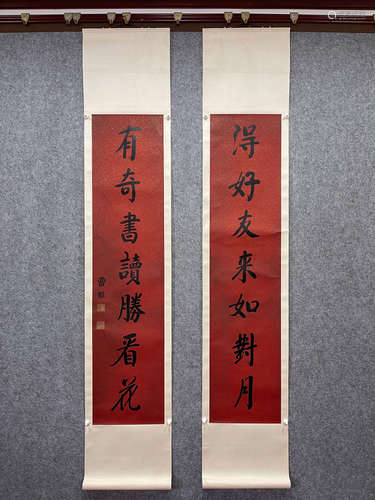 得好友来如對月
有奇書讀勝看花